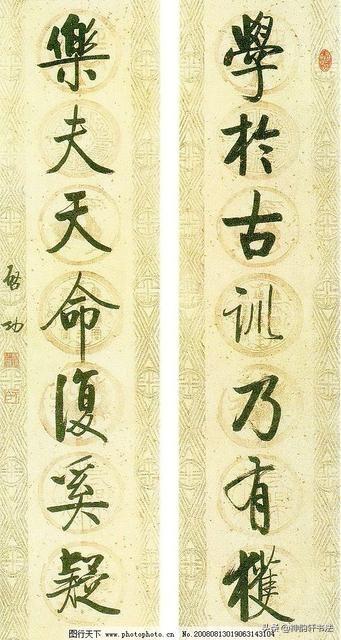 學於古訓乃有獲
樂夫天命復奚疑
啓功
图行天下 www.photophoto.cn No.20080813019063143104
头条 @神韵轩书法